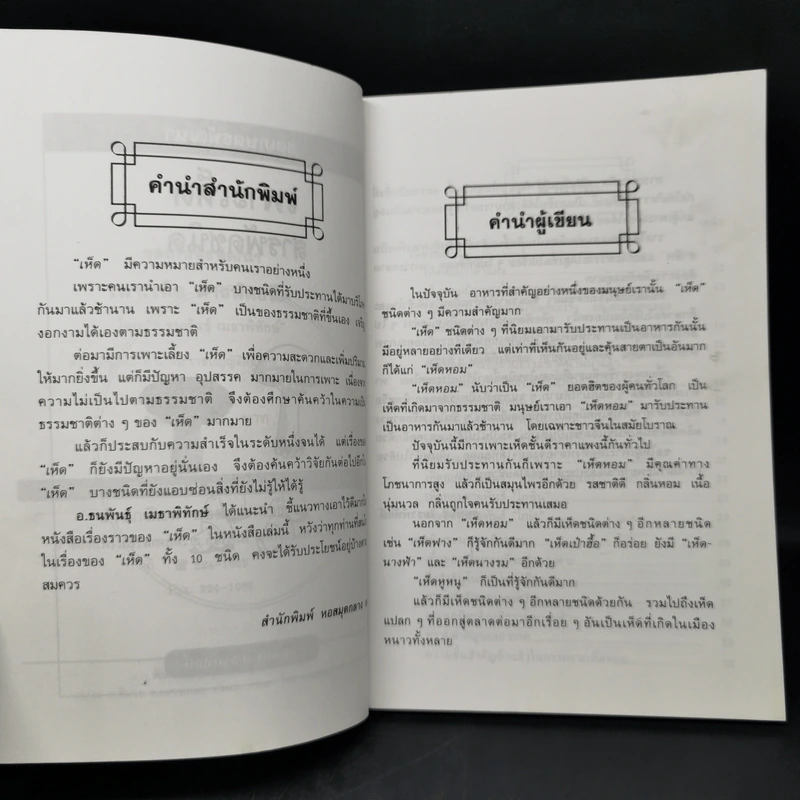 คำนำสำนักพิมพ์
"เห็ด" มีความหมายสำหรับคนเราอย่างหนึ่ง
เพราะคนเรานำเอา "เห็ด" บางชนิดที่รับประทานได้มาบริโภค
กันมาแล้วช้านาน เพราะ "เห็ด" เป็นของธรรมชาติที่ขึ้นเอง เจริญ
งอกงามได้เองตามธรรมชาติ
ต่อมามีการเพาะเลี้ยง "เห็ด" เพื่อความสะดวกและเพิ่มปริมาณ
ให้มากยิ่งขึ้น แต่ก็มีปัญหา อุปสรรค มากมายในการเพาะ เนื่องจาก
ความไม่เป็นไปตามธรรมชาติ จึงต้องศึกษาค้นคว้าในความเป็น
ธรรมชาติต่าง ๆ ของ "เห็ด" มากมาย
แล้วก็ประสบกับความสำเร็จในระดับหนึ่งจนได้ แต่เรื่องของ
"เห็ด" ก็ยังมีปัญหาอยู่นั่นเอง จึงต้องค้นคว้าวิจัยกันต่อไปอีกใน
"เห็ด" บางชนิดที่ยังแอบซ่อนสิ่งที่ยังไม่รู้ให้ได้รู้
อ.ธนพันธุ์ เมธาพิทักษ์ ได้แนะนำ ชี้แนวทางเอาไว้ดีมากใน
หนังสือเรื่องราวของ "เห็ด" ในหนังสือเล่มนี้ หวังว่าทุกท่านที่สนใจ
ในเรื่องของ "เห็ด" ทั้ง 10 ชนิด คงจะได้รับประโยชน์อยู่บ้างตาม
สมควร
สำนักพิมพ์ หอสมุดกลาง
คำนำผู้เขียน
ในปัจจุบัน อาหารที่สำคัญอย่างหนึ่งของมนุษย์เรานั้น "เห็ด"
ชนิดต่าง ๆ มีความสำคัญมาก
"เห็ด" ชนิดต่าง ๆ ที่นิยมเอามารับประทานเป็นอาหารกันนั้น
มีอยู่หลายอย่างทีเดียว แต่เท่าที่เห็นกันอยู่และคุ้นสายตาเป็นอันมาก
ก็ได้แก่ "เห็ดหอม"
"เห็ดหอม" นับว่าเป็น "เห็ด" ยอดฮิตของผู้คนทั่วโลก เป็น
เห็ดที่เกิดมาจากธรรมชาติ มนุษย์เราเอา "เห็ดหอม" มารับประทาน
เป็นอาหารกันมาแล้วช้านาน โดยเฉพาะชาวจีนในสมัยโบราณ
ปัจจุบันนี้มีการเพาะเห็ดชั้นดีราคาแพงนี้กันทั่วไป
ที่นิยมรับประทานกันก็เพราะ "เห็ดหอม" มีคุณค่าทาง
โภชนาการสูง แล้วก็เป็นสมุนไพรอีกด้วย รสชาติดี กลิ่นหอม เนื้อ
นุ่มนวล กลิ่นถูกใจคนรับประทานเสมอ
นอกจาก "เห็ดหอม" แล้วก็มีเห็ดชนิดต่าง ๆ อีกหลายชนิด
เช่น "เห็ดฟาง" ก็รู้จักกันดีมาก "เห็ดเป๋าฮื้อ" ก็อร่อย ยังมี "เห็ด-
นางฟ้า" และ "เห็ดนางรม" อีกด้วย
"เห็ดหูหนู" ก็เป็นที่รู้จักกันดีมาก
แล้วก็มีเห็ดชนิดต่าง ๆ อีกหลายชนิดด้วยกัน รวมไปถึงเห็ด
แปลก ๆ ที่ออกสู่ตลาดต่อมาอีกเรื่อย ๆ อันเป็นเห็ดที่เกิดในเมือง
หนาวทั้งหลาย